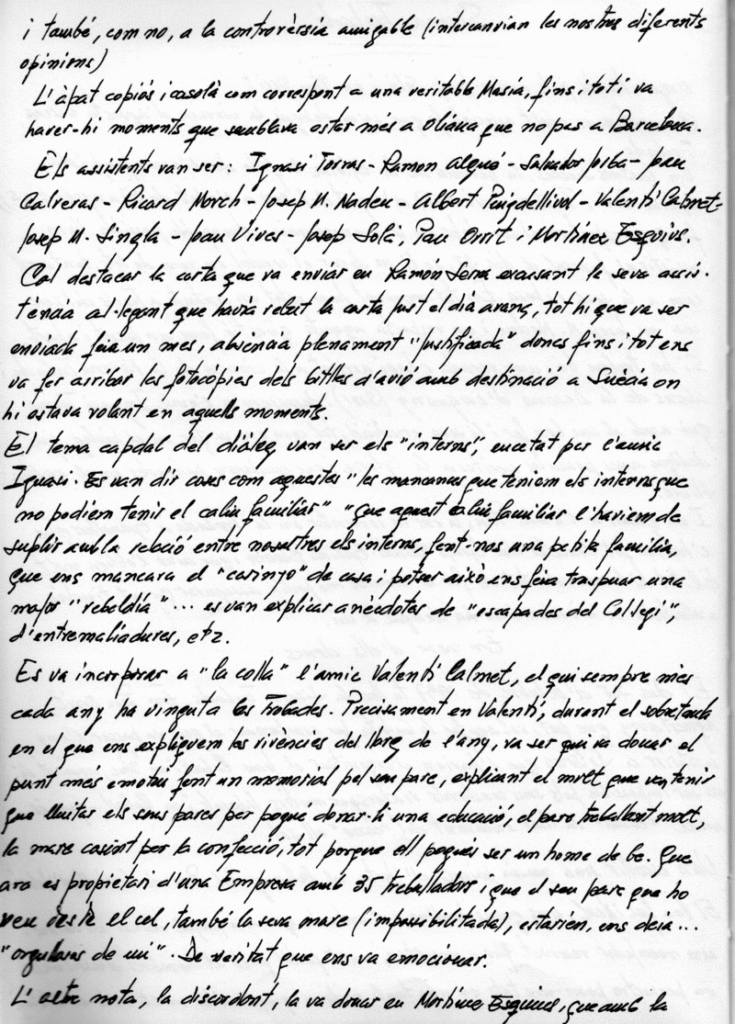 i també, com no, a la controvèrsia amigable (intercanvian les nostres diferents
opinions)
L'àpat copiós i casolà com correspont a una veritable Masia, fins i tot i va
haver-hi moments que semblava estar més a Oliana que no pas a Barcelona.
Els assistents van ser: Ignasi Torras - Ramon Algué - Salvador Jorba - Joan
Calveras - Ricard March - Josep M. Nadeu - Albert Puigdellivol - Valentí Calmet -
Josep M. Singla - Joan Vives - Josep Solà, Pau Orrit i Martínez Esquius.
Cal destacar la carta que va enviar en Ramón Serra excusant le seva assis-
tència al·legant que havia rebut la carta just el dia avanç, tot hi que va ser
enviada feia un mes, absència plenament "justificada" doncs fins i tot ens
va fer arribar les fotocópies dels bitlles d'avió amb destinació a Suècia on
hi estava volant en aquells moments.
El tema capdal del diàleg van ser els "interns", encetat per l'amic
Ignasi. Es van dir coses com aquestes "les mancances que teniem els interns que
no podiem tenir el caliu familiar" "que aquest caliu familiar l'haviem de
suplir amb la relació entre nosaltres els interns, fent-nos una petita familia,
que ens mancara el "carinyo" de casa i potser això ens feia traspuar una
major "rebeldía"... es van explicar anècdotes de "escapades del Collegi",
d'entremaliadures, etz.
Es va incorporar a "la colla" l'amic Valentí Calmet, el qui sempre més
cada any ha vingut a les Trobades. Precisament en Valentí, durant el sobretaula
en el que ens expliquem les vivències del llarg de l'any, va ser qui va donar el
punt més emotiu fent un memorial pel seu pare, explicant el molt que van tenir
que lluitar els seus pares per pogue donar-li una educació, el pare treballant molt,
la mare cosint per la confecció, tot porque ell pogués ser un home de be. Que
ara es propietari d'una Empresa amb 35 treballadors i que el seu pare que ho
veu desde el cel, també la seva mare (impossibilitada), estarien, ens deia...
"orgullosos de mi". De veritat que ens va emocionar.
L'altre nota, la discordant, la va donar en Martínez Esquius, que amb la